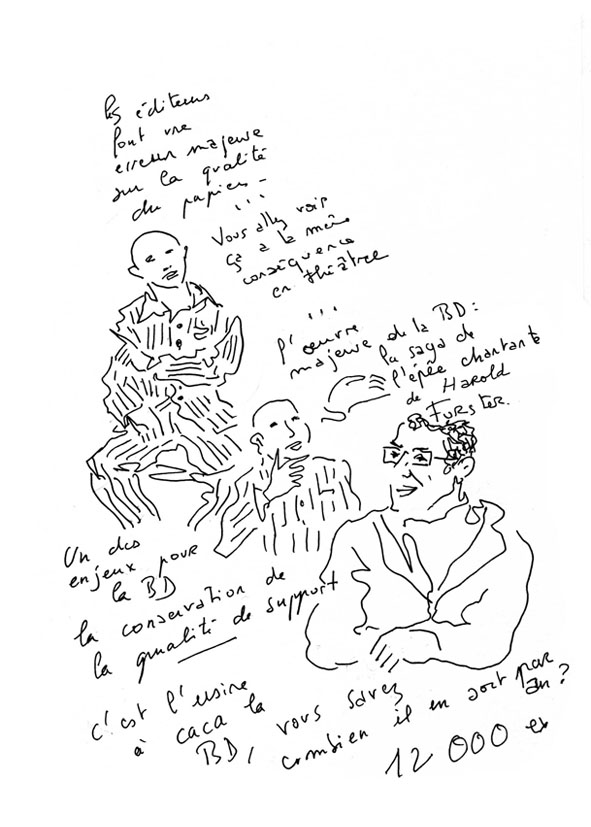 les éditeurs
font une
erreur majeure
sur la qualité
du papier -
...
Vous allez voir
ça a la même
conséquence
en théâtre
...
l'œuvre
majeure de la BD :
la saga de
l'épée chantante
de Harold
Furster.
Un des
enjeux pour
la BD
la conservation de
la qualité de support
c'est l'usine
à caca la
BD, vous savez
combien il en sort par
an ?
12 000 ex